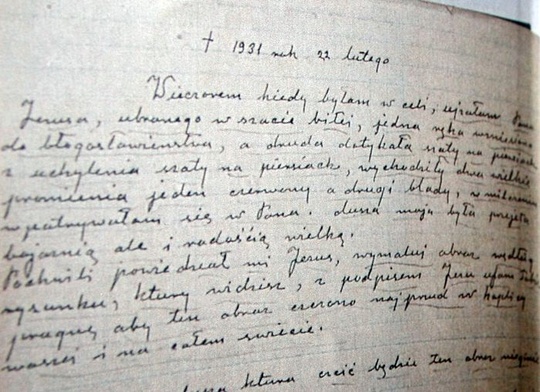 † 1931 rok 22 lutego
Wieczorem kiedy byłam w celi, ujrzałam Pana
Jezusa, ubranego w szacie białej, jedna ręka wzniesiona
do błogosławieństwa, a druda dotykała szaty na piersiach
z uchylenia szaty na piersiach, wychodziły dwa wielkie
promienia jeden czerwony a drugi blady, w milczeniu
wpatrywałam się w Pana. dusza moja była przejęta
bojaźnią ale i radością wielką.
Po chwili powiedział mi Jezus, wymaluj obraz według
rysunku, ktury widzisz, z podpisem Jezu ufam Tobie,
pragnę aby ten obraz czczono najprzud w kaplicy
waszej i na całem świecie.
dusza ktura czcić będzie ten obraz nie zginie